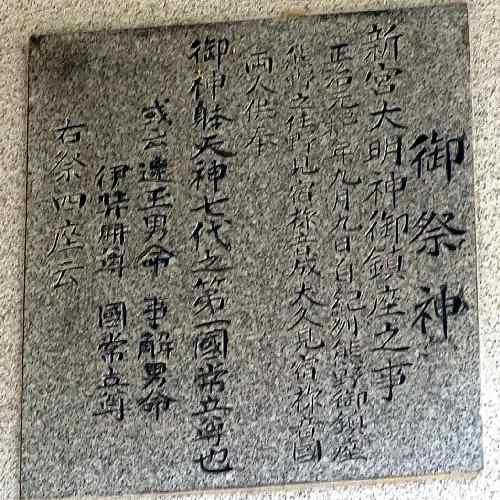 御祭神
新宮大明神御鎮座之事
正治元年九月九日自紀刕熊野御鎮座
熊野之住野地宿祢吉成大久見宿祢吉国
両人供奉
御神躰天神七代之第一國常立尊也
或云速玉男命 事解男命
伊弉冊尊 國常立尊
右祭四座云